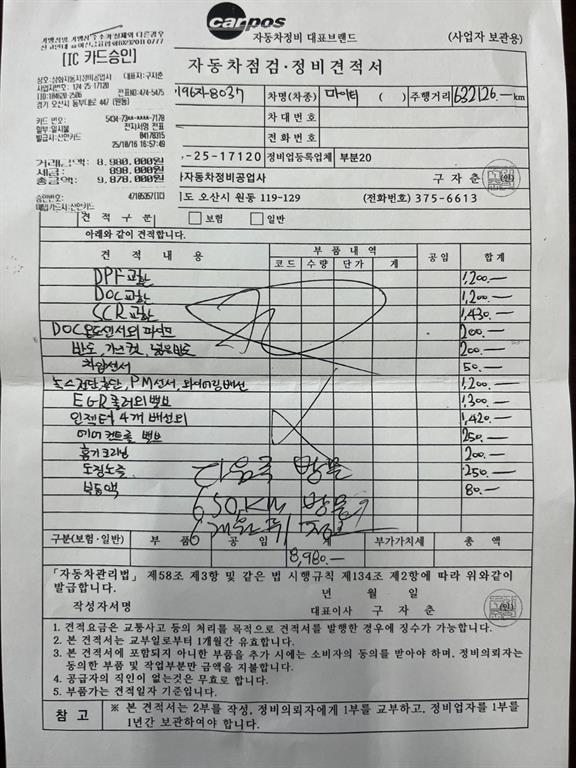 carpos
자동차정비 대표브랜드
(사업자 보관용)
[IC 카드승인]
자동차점검·정비견적서
상호:삼화자동차정비공업사 대표자:구자춘
사업자번호:124-25-17120
전표No:474-5475
경기 오산시 동부대로 447 (원동)
196자8037
차명(차종) 마이티 ( ) 주행거리 632126.- km
차대번호
전화번호
카드 번호: 5434-73**-****-7178
할부:일시불 전자서명 전표
발급사:신한카드 04178315
25/10/16 16:57:49
거래금액: 8,980,000원
세금: 898,000원
총금액: 9,878,000원
승인번호: 47185357
매입카드사:신한카드
-25-17120 정비업등록업체 부분20
자동차정비공업사 구자춘 (인)
도 오산시 원동 119-129 (전화번호) 375-6613
견적구분 보험 일반
아래와 같이 견적합니다.
견적내용 부품내역 공임 합계
코드 수량 단가 계
DPF교환 1,200.-
DOC교환 1,200.-
SCR교환 1,430.-
DOC온도센서외 파이프 200.-
반도, 가스켓, 200.-
차압센서 50.-
녹스점단, PM센서, 와이어링배선 1,200.-
EGR쿨러외밸브 1,300.-
인젝터 4개 배선외 1,420.-
에어 컨트롤 밸브 250.-
흡기크리닝 200.-
도징노즐 250.-
부동액 80.-
다음록 방문
650,KM 방문
구분(보험·일반) 부품 공임 계 부가가치세 총액
8,980.-
「자동차관리법」 제58조 제3항 및 같은 법 시행규칙 제134조 제2항에 따라 위와같이
발급합니다.
년 월 일
작성자서명 대표이사 구자춘 (인)
1. 견적요금은 교통사고 등의 처리를 목적으로 견적서를 발행한 경우에 징수가 가능합니다.
2. 본 견적서는 교부일로부터 1개월간 유효합니다.
3. 본 견적서에 포함되지 아니한 부품을 추가 시에는 소비자의 동의를 받아야 하며, 정비의뢰자는
동의한 부품 및 작업부분만 금액을 지불합니다.
4. 공급자의 직인이 없는것은 무효로 합니다.
5. 부품가는 견적일자 기준입니다.
참고 ※ 본 견적서는 2부를 작성, 정비의뢰자에게 1부를 교부하고, 정비업자를 1부를
1년간 보관하여야 합니다.